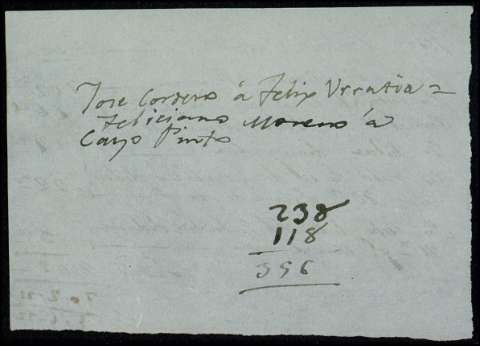 Jose Cordero á Felix Urratia =
Feliciano Moreno á
Cayo Pinto
238
118
356